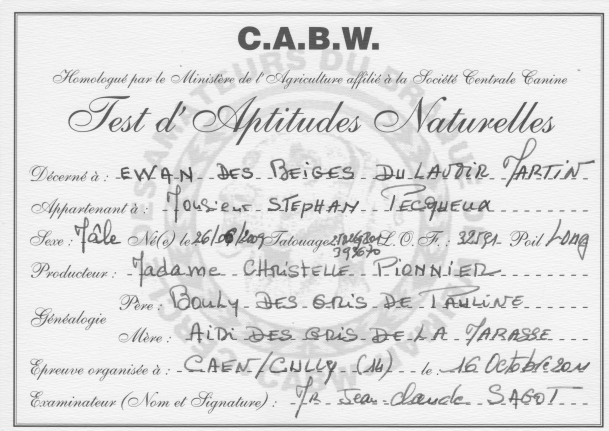 C.A.B.W.
Homologué par le Ministère de l'Agriculture affilié à la Société Centrale Canine
Test d'Aptitudes Naturelles
Décerné à : EWAN DES BEIGES DU LAVOIR MARTIN
Appartenant à : Monsieur STEPHAN PECQUEUX
Sexe : Mâle Né(e) le 26/06/2009 Tatouage L.O.F. : 32591 Poil LONG
393670
Producteur : Madame CHRISTELLE PIONNIER
Généalogie
Père : BOULY DES GRIS DE PAULINE
Mère : AIDI DES GRIS DE LA MARASSE
Epreuve organisée à : CAEN/CULLY (14) le 16 Octobre 2011
Examinateur (Nom et Signature) : MR Jean-claude SAGOT